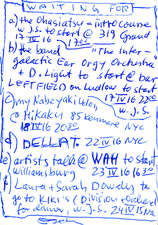 WAITING FOR
a) the Ohasiatsu - intro course
W.J.S. to start @ 319 Grand
17 IV 16 17
b) the band "The Inter-
galactic Ear Orgy Orchestra
+ D. Light to start @ bar
LEFTFIELD on Ludlow to start
17 IV 16 22
c) my Nabeyaki
@ Mikaku 85 Kenmare
18 IV 16 20 30 NYC
d) DELLAT 22 IV 16 NYC
e) artists talk @ WAH to start
Williamsburg 23 IV 16 16 30
f) Laura + Sarah Dowdy to
go to KIKI'S (Division + Orchard
for dinner, W.J.S. 24 IV NYC